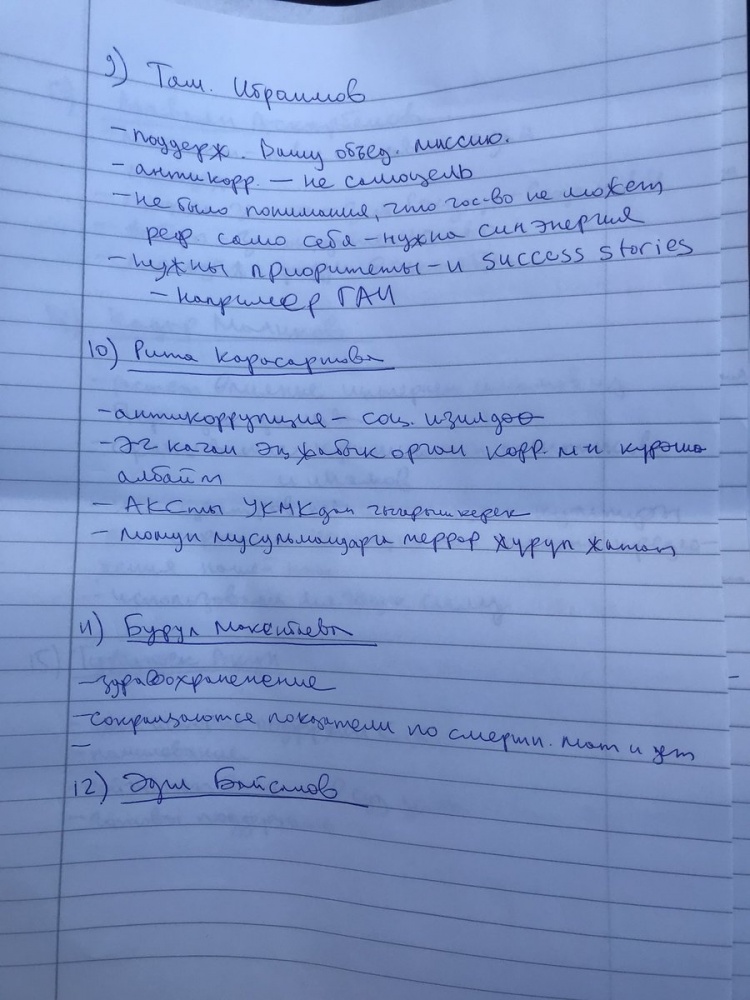 9) Там. Ибраимов
- поддерж. Вашу объед. миссию.
- антикорр. — не самоцель
- не было понимания, что гос-во не может
реф само себя - нужна синэнергия
- нужны приоритеты - и success stories
- например ГАИ
10) Рита Карасартова
- антикоррупция - соц. изилдөө
- Эч качан эч жабык орган корр. м-н күрөшө
албайт
- АКСты УКМКдан чыгарыш керек
- мусульмандарга террор жүрүп жатат
11) Бурул Макенбаева
- здравоохраненение
- сокращаются показатели по смертн. мат и дет
-
12) Эдил Байсалов